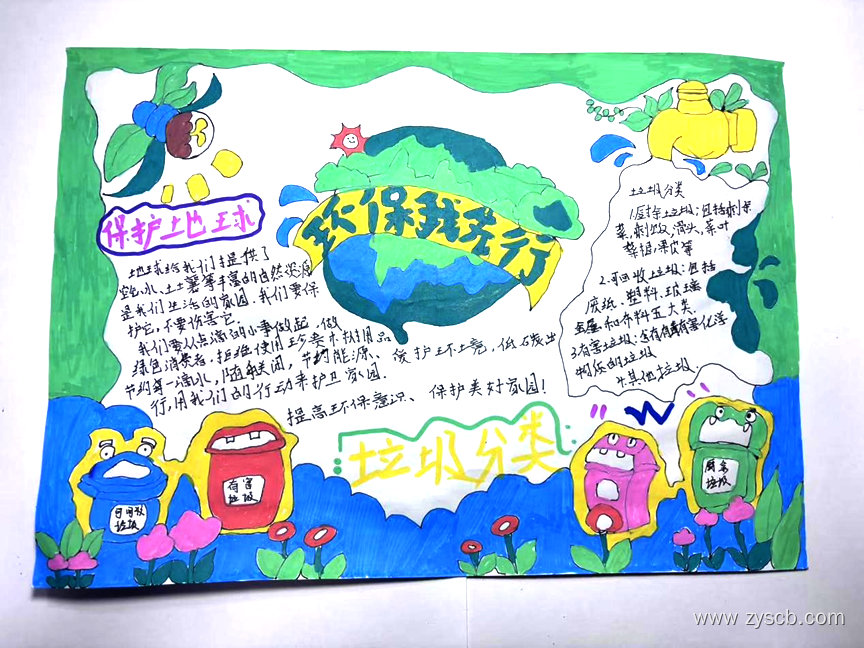 环保我先行
保护地球
地球给我们提供了
空气、水、土壤等丰富的自然资源
是我们生活的家园,我们要保
护它,不要伤害它。
我们要从点滴的小事做起,做
绿色消费者,拒绝使用珍贵木材用品
节约每一滴水,随手关闭,节约能源、保护环境,低碳出
行,用我们的行动来护卫家园.
提高环保意识、保护美好家园!
垃圾分类
1.厨余垃圾:包括剩
菜,剩饭,骨头,菜叶
菜根,果皮等
2.可回收垃圾:包括
废纸.塑料.玻璃
金属和布料五大类.
3.有害垃圾:含有有害化学
物质的垃圾
4.其他垃圾.
垃圾分类
可回收
垃圾
有害
垃圾
厨余
垃圾
www.zyscb.com